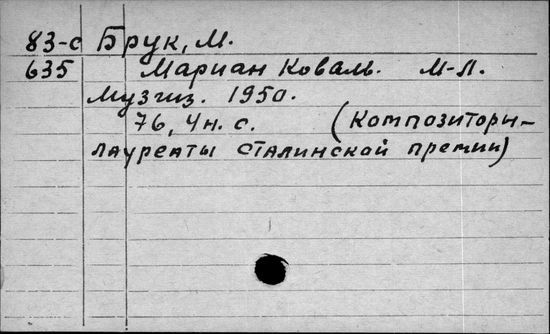 83-с Брук, М.
635 Мариан Коваль. М-Л.
Музгиз. 1950.
76, 4н. с. (Композиторы-
лауреаты сталинской премии)